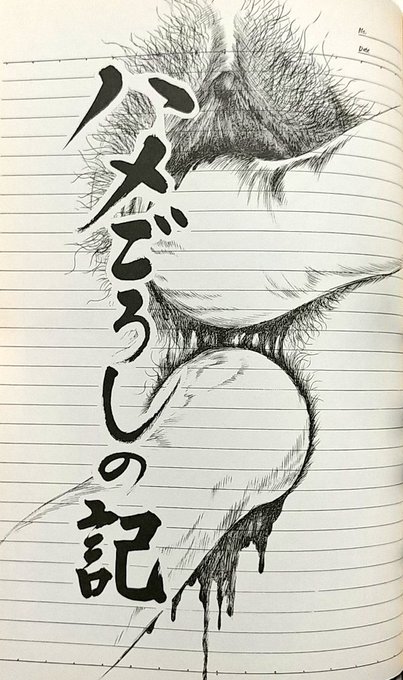 No.
Date
ハメごろしの記